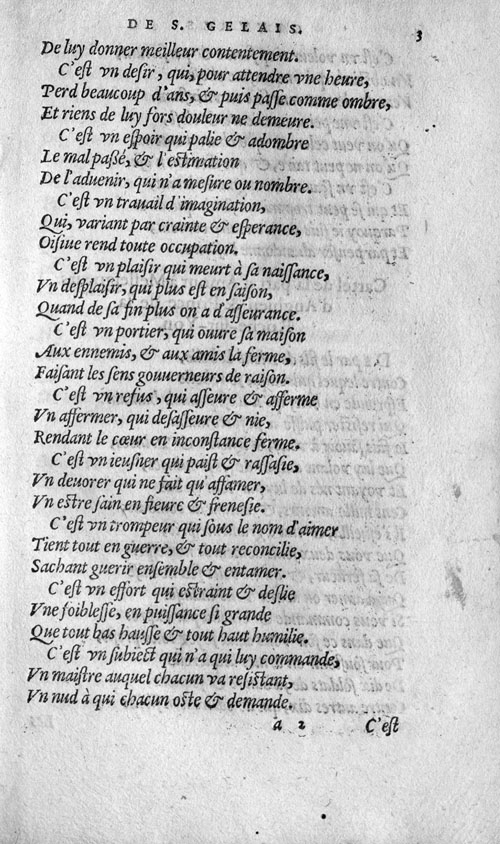 DE S. GELAIS. 3
De luy donner meilleur contentement.
C'eſt vn deſir, qui, pour attendre vne heure,
Perd beaucoup d'ans, & puis paſſe comme ombre,
Et riens de luy fors douleur ne demeure.
C'eſt vn eſpoir qui palie & adombre
Le mal paßé, & l'eſtimation
De l'aduenir, qui n'a meſure ou nombre.
C'eſt vn trauail d'imagination,
Qui, variant par crainte & eſperance,
Oiſiue rend toute occupation.
C'eſt vn plaiſir qui meurt à ſa naiſſance,
Vn deſplaiſir, qui plus eſt en ſaiſon,
Quand de ſa fin plus on a d'aſſeurance.
C'eſt vn portier, qui ouure ſa maiſon
Aux ennemis, & aux amis la ferme,
Faiſant les ſens gouuerneurs de raiſon.
C'eſt vn refus, qui aſſeure & afferme
Vn affermer, qui deſaſſeure & nie,
Rendant le cœur en inconſtance ferme.
C'eſt vn ieuſner qui paiſt & raſſaſie,
Vn deuorer qui ne fait qu'affamer,
Vn eſtre ſain en fieure & freneſie.
C'eſt vn trompeur qui ſous le nom d'aimer
Tient tout en guerre, & tout reconcilie,
Sachant guerir enſemble & entamer.
C'eſt vn effort qui eſtraint & deſlie
Vne foibleſſe, en puiſſance ſi grande
Que tout bas hauſſe & tout haut humilie.
C'eſt vn ſubiect qui n'a qui luy commande,
Vn maiſtre auquel chacun va reſiſtant,
Vn nud à qui chacun oſte & demande.
a 2 C'eſt